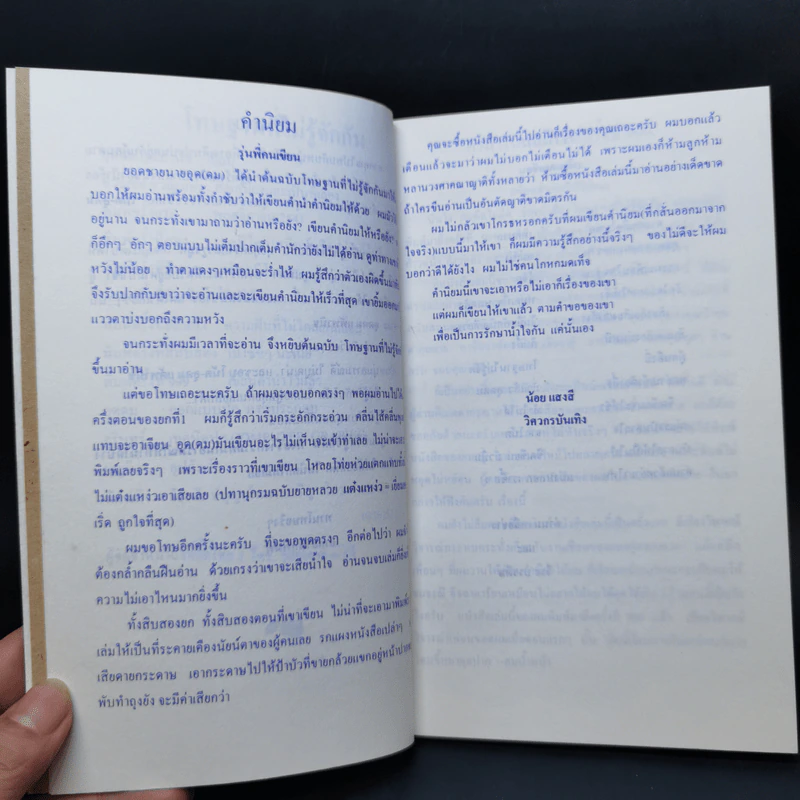 คำนิยม
รุ่นพี่คนเขียน
ยอดชายนายอุด(ตม) ได้นำต้นฉบับโทษฐานที่ไม่รู้จักกันมาให้
บอกให้ผมอ่านพร้อมทั้งกำชับว่าให้เขียนคำนำคำนิยมให้ด้วย
อยู่นาน จนกระทั่งเขามาถามว่าอ่านหรือยัง? เขียนคำนิยมให้หรือยัง?
ก็อึกๆ อักๆ ตอบแบบไม่เต็มปากเต็มคำนักว่ายังไม่ได้อ่าน ดูท่าทาง
หวังไม่น้อย ทำตาแดงๆเหมือนจะร่ำไห้ ผมรู้สึกว่าตัวเองผิดขึ้น
จึงรับปากกับเขาว่าจะอ่านและจะเขียนคำนิยมให้เร็วที่สุด เขายิ้มออก
แววตาบ่งบอกถึงความหวัง
จนกระทั่งผมมีเวลาที่จะอ่าน จึงหยิบต้นฉบับ โทษฐานที่ไม่รู้จัก
ขึ้นมาอ่าน
แต่ขอโทษเถอะนะครับ ถ้าผมจะขอบอกตรงๆ พอผมอ่านไปได้
ครึ่งตอนของยกที่1 ผมก็รู้สึกว่าเริ่มกระอักกระอ่วน คลื่นไส้คลื่น
แทบจะอาเจียน อุด(ตม)มันเขียนอะไรไม่เห็นจะเข้าท่าเลย ไม่น่าจะเอา
พิมพ์เลยจริงๆ เพราะเรื่องราวที่เขาเขียน โหลยโท่ยห่วยแตกแทบทั้ง
ไม่แต๋งแหง่วเอาเสียเลย (ปทานุกรมฉบับยายหลวย แต๋งแหง่ว = เยี่ยม
เริ่ด ถูกใจที่สุด)
ผมขอโทษอีกครั้งนะครับ ที่จะขอพูดตรงๆ อีกต่อไปว่า
ต้องกล้ำกลืนฝืนอ่าน ด้วยเกรงว่าเขาจะเสียน้ำใจ อ่านจนจบเล่มก็ยิ่ง
ความไม่เอาไหนมากยิ่งขึ้น
ทั้งสิบสองยก ทั้งสิบสองตอนที่เขาเขียน ไม่น่าที่จะเอามาพิมพ์
เล่มให้เป็นที่ระคายเคืองนัยน์ตาของผู้คนเลย รกแผงหนังสือเปล่าๆ
เสียดายกระดาษ เอากระดาษไปให้ป้าบัวที่ขายกล้วยแขกอยู่หน้า
พับทำถุงยัง จะมีค่าเสียกว่า
คุณจะซื้อหนังสือเล่มนี้ไปอ่านก็เรื่องของคุณเถอะครับ ผมบอกแล้ว
เตือนแล้วจะมาว่าผมไม่บอกไม่เตือนไม่ได้ เพราะผมเองก็ห้ามลูกห้าม
หลานวงศาคณาญาติทั้งหลายว่า ห้ามซื้อหนังสือเล่มนี้มาอ่านอย่างเด็ดขาด
ถ้าใครขืนอ่านเป็นอันตัดญาติขาดมิตรกัน
ผมไม่กลัวเขาโกรธหรอกครับที่ผมเขียนคำนิยม(ที่กลั่นออกมาจาก
ใจจริง)แบบนี้มาให้เขา ก็ผมมีความรู้สึกอย่างนี้จริงๆ ของไม่ดีจะให้ผม
บอกว่าดีได้ยังไง ผมไม่ใช่คนโกหกมดเท็จ
คำนิยมนี้เขาจะเอาหรือไม่เอาก็เรื่องของเขา
แต่ผมก็เขียนให้เขาแล้ว ตามคำขอของเขา
เพื่อเป็นการรักษาน้ำใจกัน แค่นั้นเอง
น้อย แสงสี
วิศวกรบันเทิง